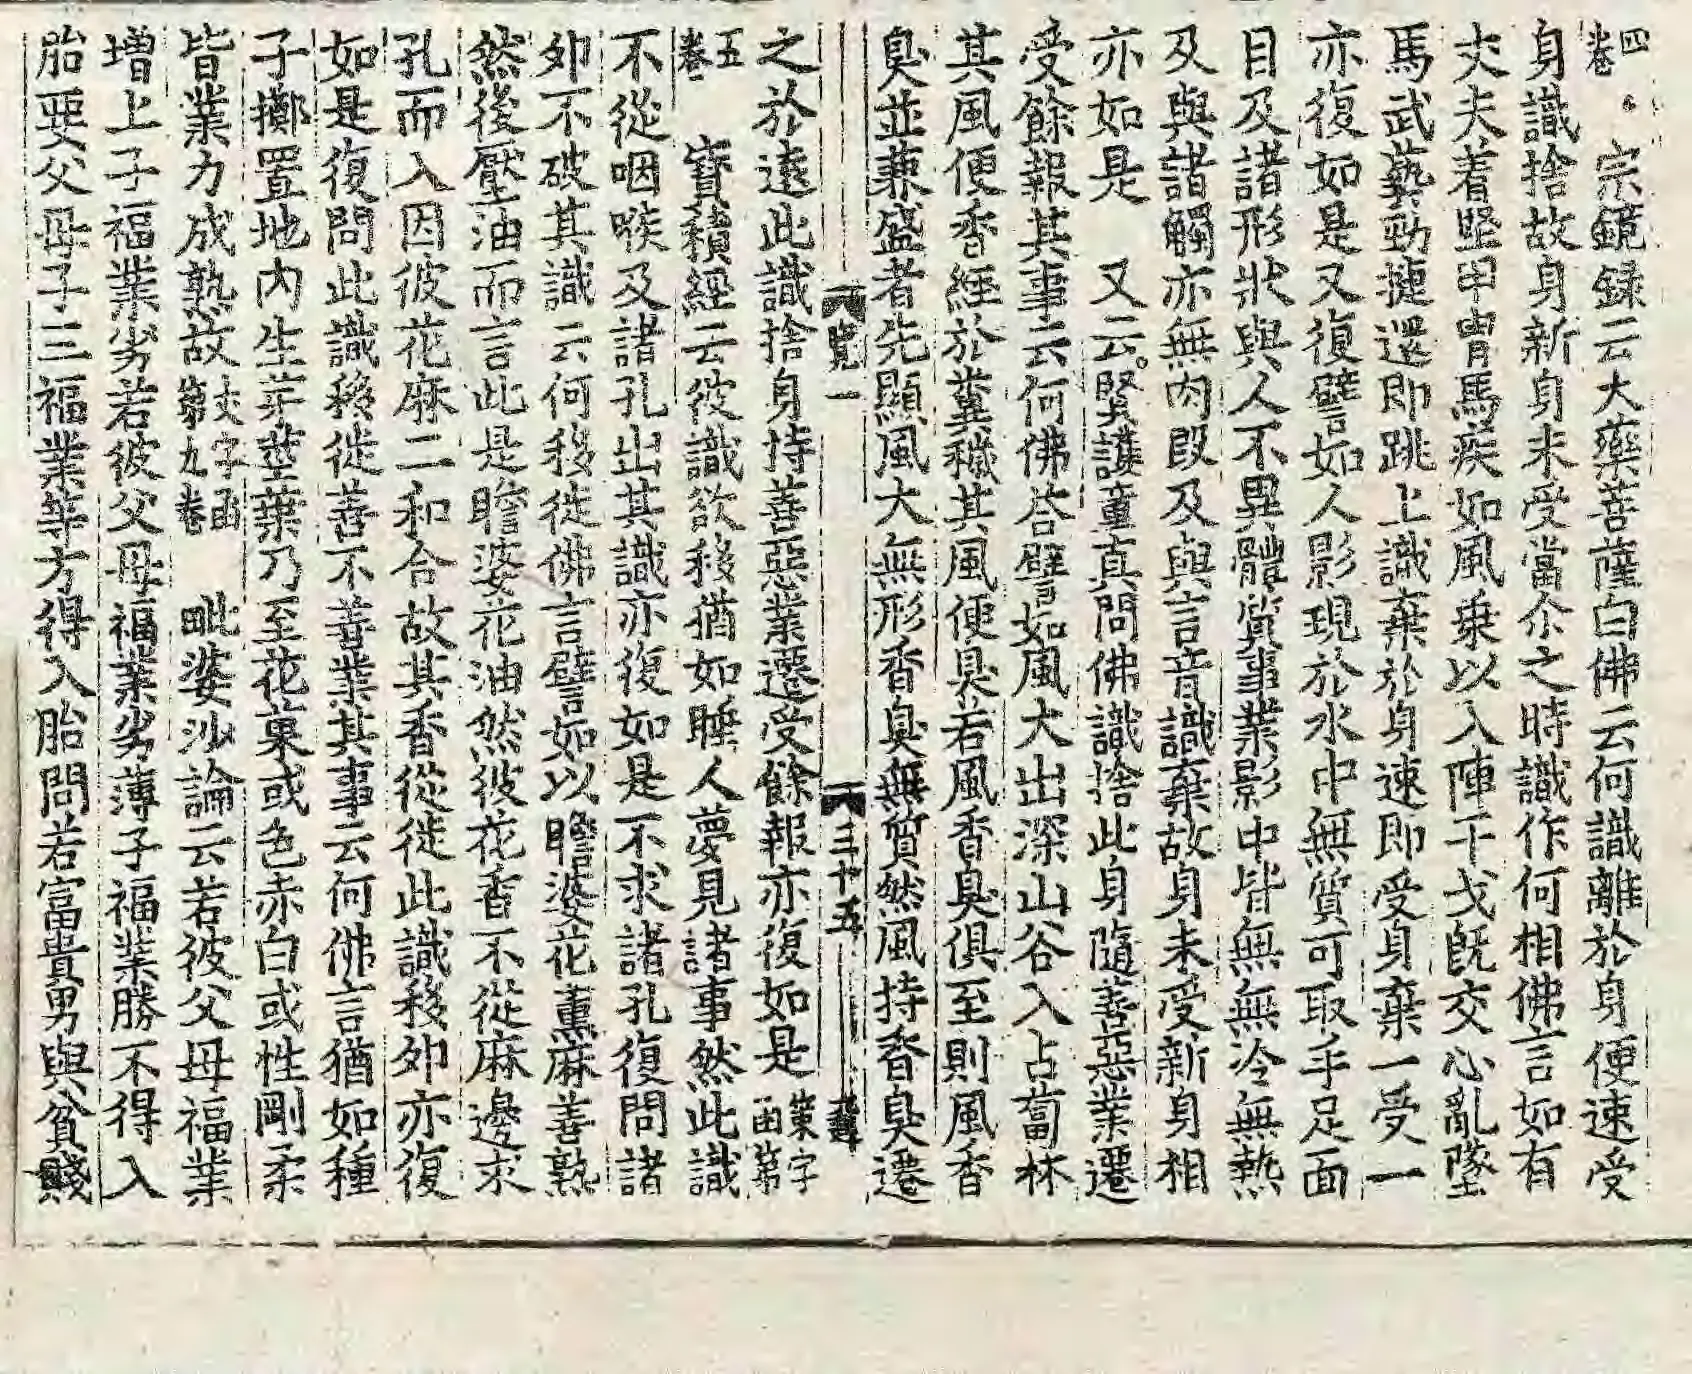 四卷 宗鏡録云大藥菩薩白佛云何識離於身便速受
身識捨故身新身未受當尒之時識作何相佛言如有
丈夫着堅甲冑馬疾如風乗以入陣干戈旣交心亂墜
馬武藝勁捷還即跳上識棄於身速即受身棄一受一
亦復如是又復譬如人影現於水中無質可取手足面
目及諸形狀與人不異體質事業影中皆無無冷無熱
及與諸觸亦無肉段及與言音識棄故身未受新身相
亦如是 又云賢護童真問佛識捨此身隨善惡業遷
受餘報其事云何佛荅譬如風大出深山谷入占蔔林
其風便香經於糞穢其風便臭若風香臭俱至則風香
臭並兼盛者先顯風大無形香臭無質然風持香臭遷
覽一 三十五
之於遠此識捨身持善惡業遷受餘報亦復如是策字函第
五卷 寶積經云彼識欲移猶如睡人夢見諸事然此識
不從咽喉及諸孔出其識亦復如是不求諸孔復問諸
夘不破其識云何移徙佛言譬如以瞻婆花薰麻善熟
然後壓油而言此是瞻婆花油然彼花香不從麻邊求
孔而入因彼花麻二和合故其香從徙此識移夘亦復
如是復問此識移徙善不善業其事云何佛言猶如種
子擲置地内生芽莖葉乃至花菓或色赤白或性剛柔
皆業力成熟故文字函第九卷 毗婆沙論云若彼父母福業
增上子福業劣若彼父母福業劣薄子福業勝不得入
胎要父母子三福業等方得入胎問若富貴男與貧賤